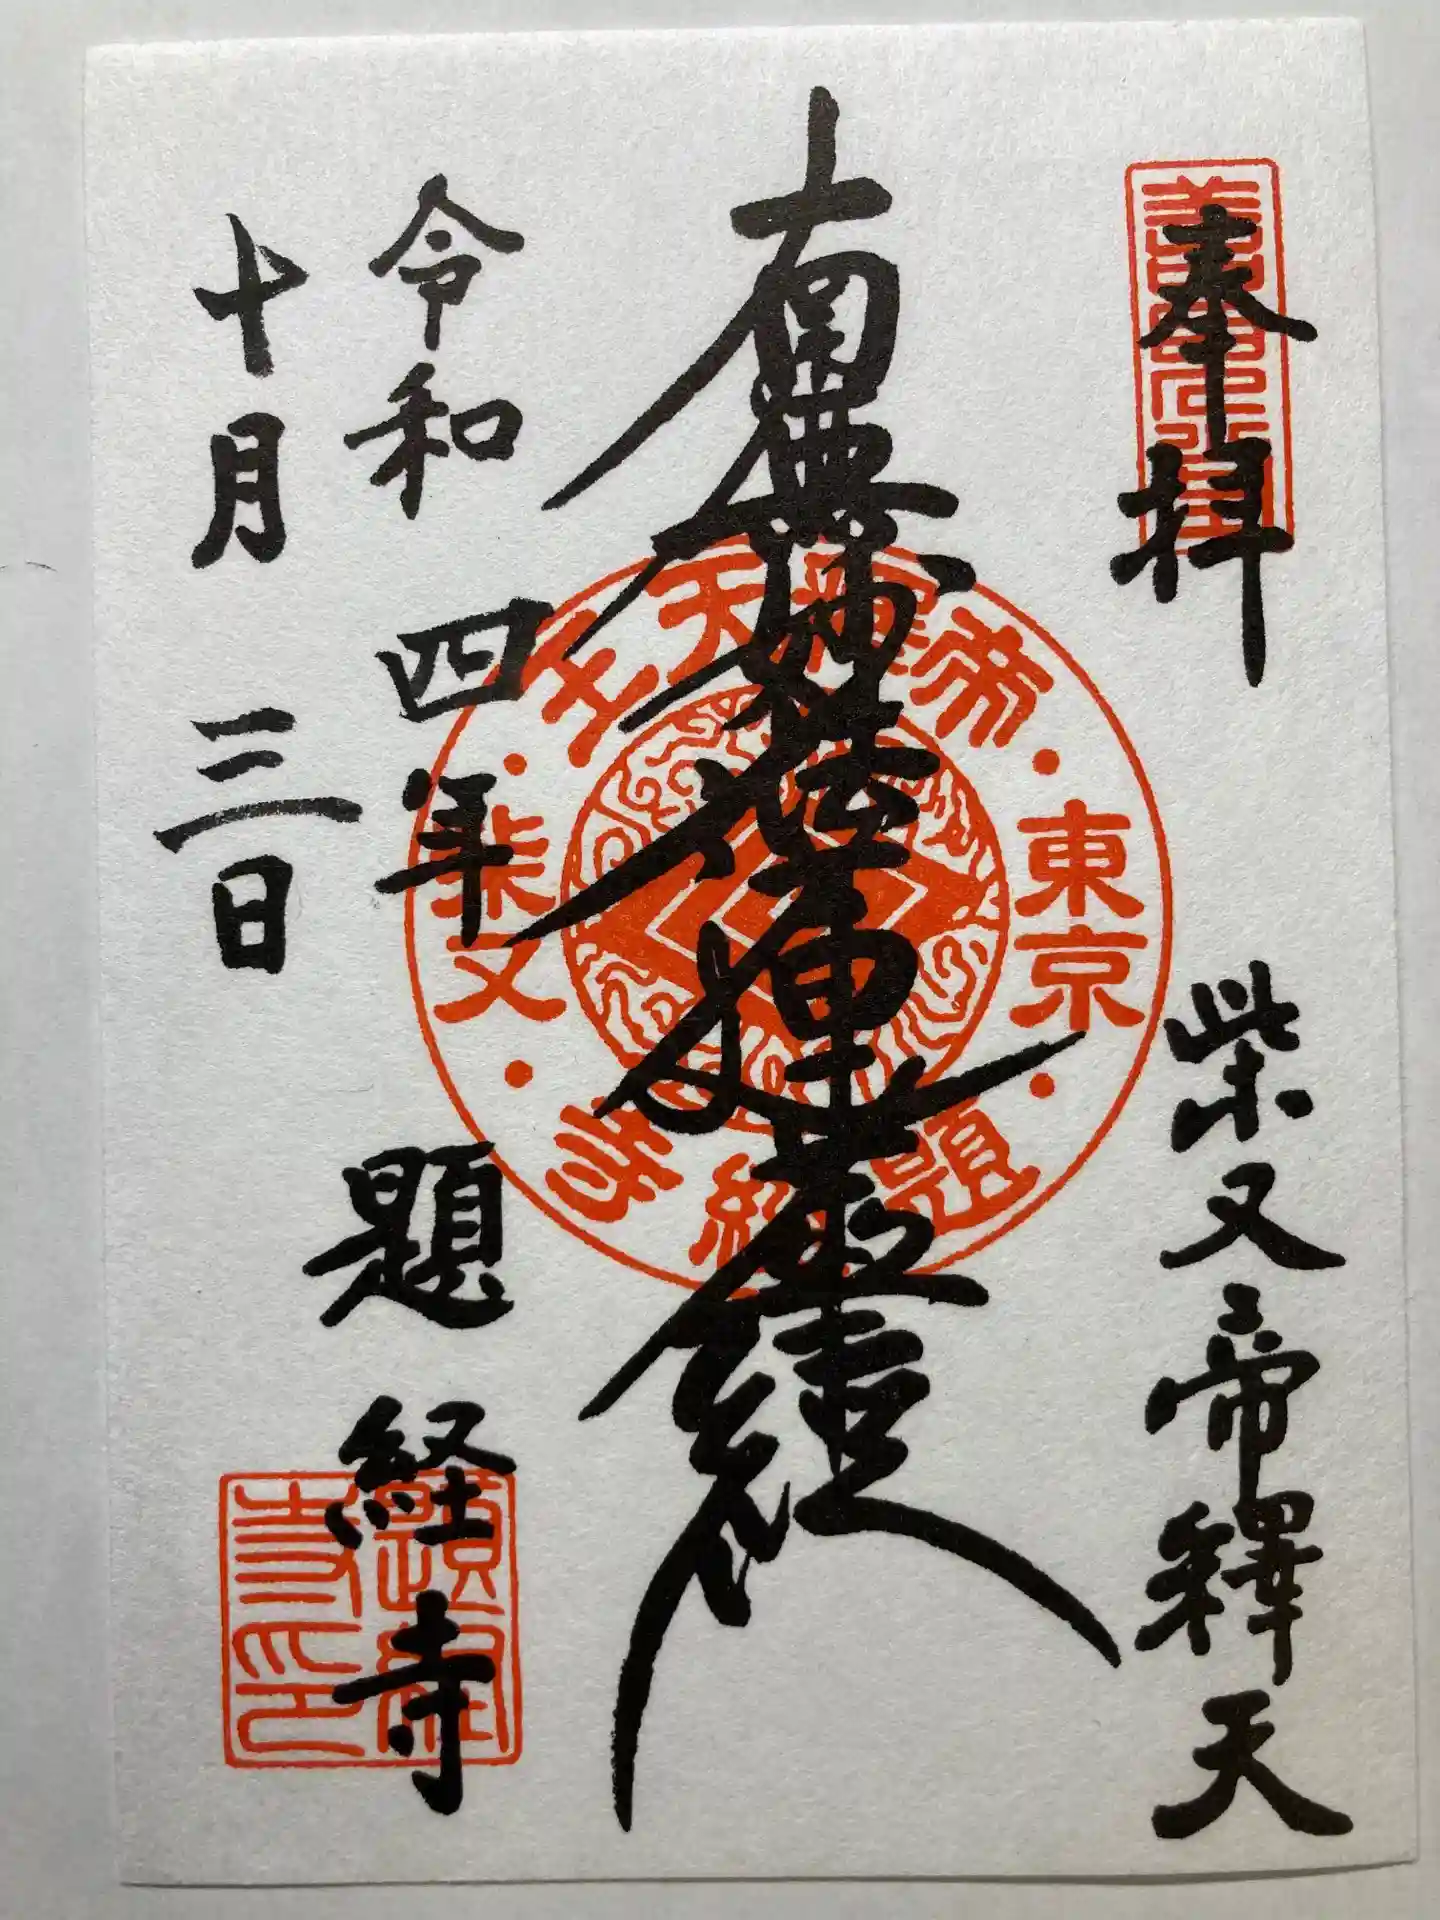 奉拝
柴又帝釋天
南無妙法蓮華経
令和四年
十月三日
題経寺
帝釋天王
東京
柴又
題経寺
題経寺印